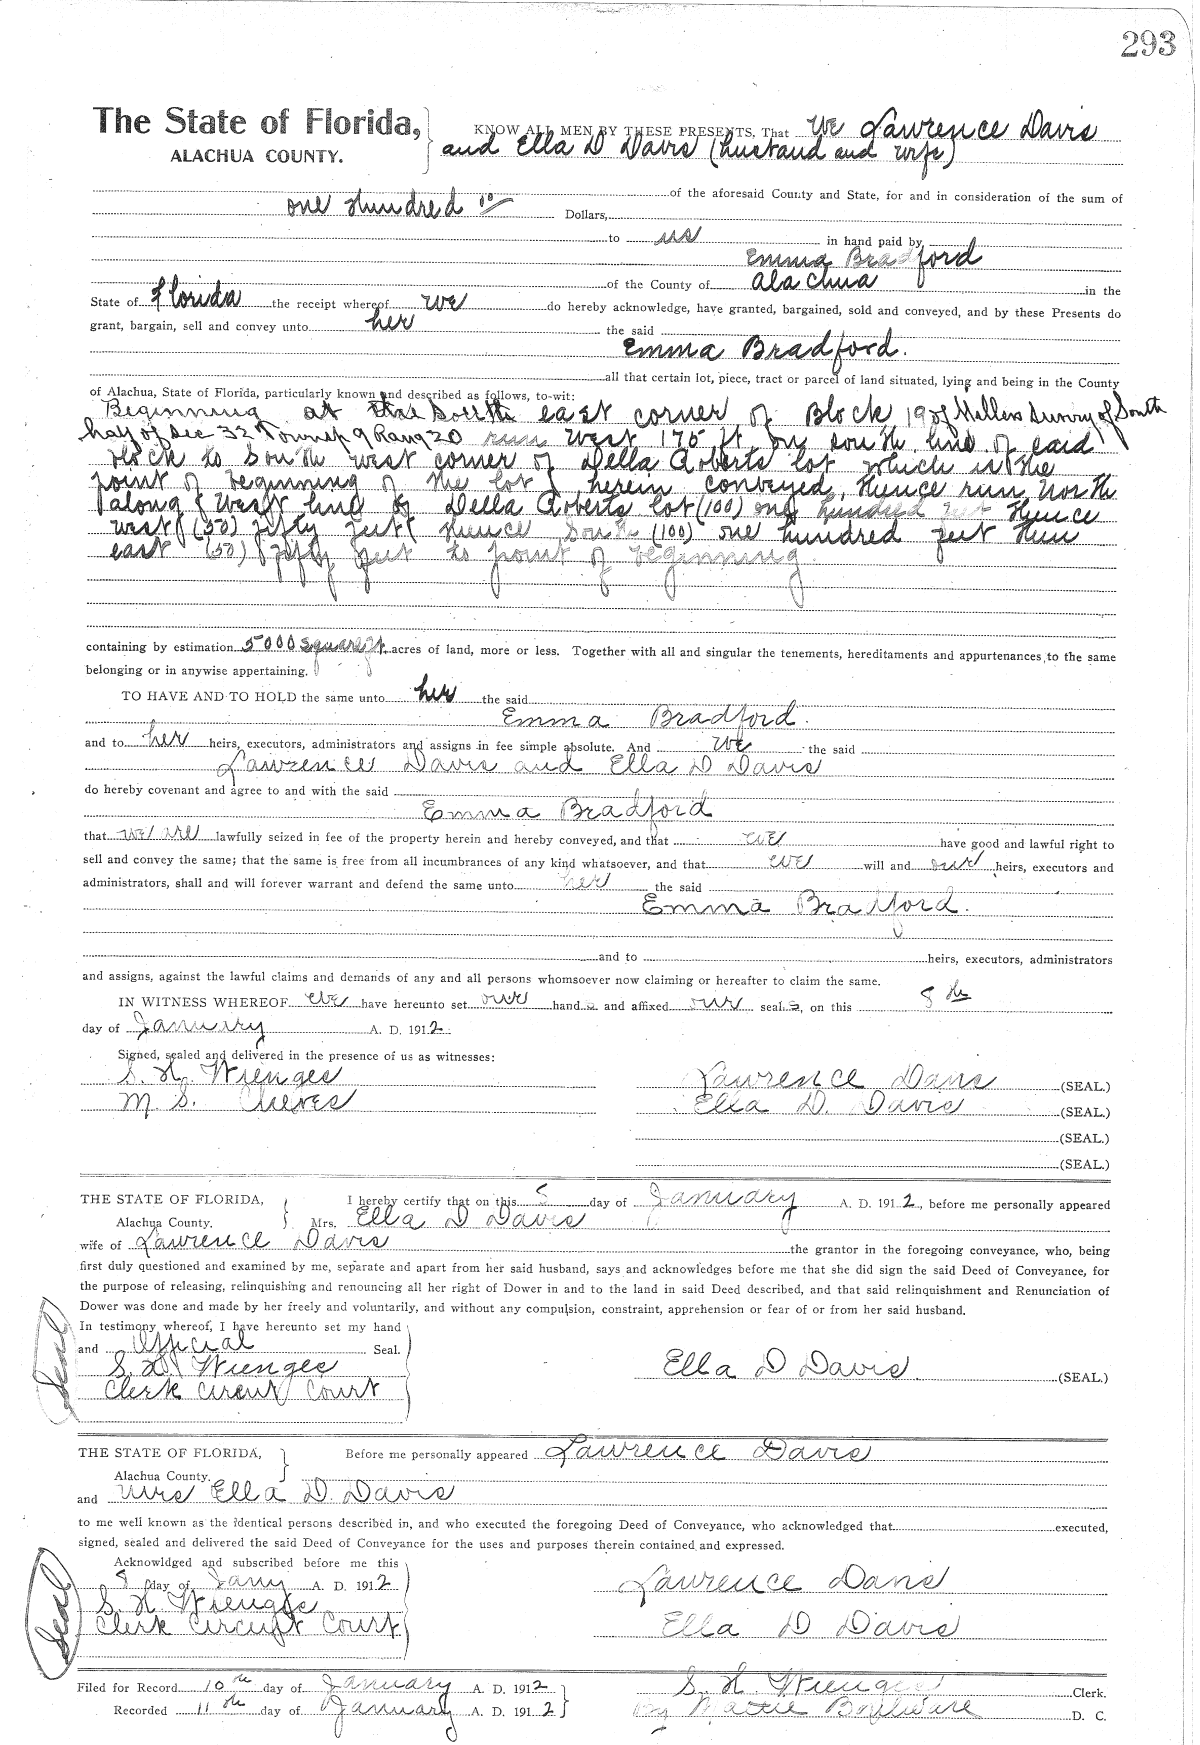 293
The State of Florida,
ALACHUA COUNTY.
KNOW ALL MEN BY THESE PRESENTS, That We Lawrence Davis
and Ella D Davis (husband and wife)
of the aforesaid County and State, for and in consideration of the sum of
one Hundred Dollars,
to us in hand paid by
Emma Bradford
of the County of Alachua in the
State of Florida the receipt whereof we do hereby acknowledge, have granted, bargained, sold and conveyed, and by these Presents do
grant, bargain, sell and convey unto her the said
Emma Bradford.
all that certain lot, piece, tract or parcel of land situated, lying and being in the County
of Alachua, State of Florida, particularly known and described as follows, to-wit:
Beginning at the South east corner of Block 19 of Survey of South
half of Sec 32 Township 9 Rang 20 run west 175 ft on south line of said
Block to South west corner of Della Roberts lot which is the
point of beginning of the lot herein conveyed, thence run North
along West line of Della Roberts lot (100) one hundred feet thence
west (50) fifty feet thence South (100) one hundred feet then
east (50) fifty feet to point of beginning
containing by estimation 5000 square ft. acres of land, more or less. Together with all and singular the tenements, hereditaments and appurtenances, to the same
belonging or in anywise appertaining.
TO HAVE AND TO HOLD the same unto her the said
Emma Bradford.
and to her heirs, executors, administrators and assigns in fee simple absolute. And we the said
Lawrence Davis and Ella D Davis
do hereby covenant and agree to and with the said
Emma Bradford
that we are lawfully seized in fee of the property herein and hereby conveyed, and that we have good and lawful right to
sell and convey the same; that the same is free from all incumbrances of any kind whatsoever, and that we will and our heirs, executors and
administrators, shall and will forever warrant and defend the same unto her the said
Emma Bradford.
and to heirs, executors, administrators
and assigns, against the lawful claims and demands of any and all persons whomsoever now claiming or hereafter to claim the same.
IN WITNESS WHEREOF we have hereunto set our hands and affixed our seals, on this 8th
day of January A. D. 1912
Signed, sealed and delivered in the presence of us as witnesses:
S. H. Wienges
Lawrence Davis (SEAL.)
M. S. Cheves
Ella D. Davis (SEAL.)
(SEAL.)
(SEAL.)
THE STATE OF FLORIDA,
Alachua County.
I hereby certify that on this 8 day of January A. D. 1912, before me personally appeared
Mrs. Ella D Davis
wife of Lawrence Davis the grantor in the foregoing conveyance, who, being
first duly questioned and examined by me, separate and apart from her said husband, says and acknowledges before me that she did sign the said Deed of Conveyance, for
the purpose of releasing, relinquishing and renouncing all her right of Dower in and to the land in said Deed described, and that said relinquishment and Renunciation of
Dower was done and made by her freely and voluntarily, and without any compulsion, constraint, apprehension or fear of or from her said husband.
In testimony whereof, I have hereunto set my hand
and Official Seal.
S. H Wienges
Clerk Circuit Court
Seal
Ella D Davis (SEAL.)
THE STATE OF FLORIDA,
Alachua County.
Before me personally appeared Lawrence Davis
and Mrs Ella D. Davis
to me well known as the identical persons described in, and who executed the foregoing Deed of Conveyance, who acknowledged that executed,
signed, sealed and delivered the said Deed of Conveyance for the uses and purposes therein contained and expressed.
Acknowldged and subscribed before me this
8 day of Jany A. D. 1912
S. H Wienges
Clerk Circuit Court
Seal
Lawrence Davis
Ella D Davis
Filed for Record 10th day of January A. D. 1912
Recorded 11th day of January A. D. 1912
S. H Wienges Clerk.
By Mattie D. C.